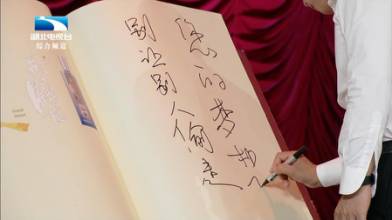 湖北电视台
综合频道
您的梦想
别让别人偷走